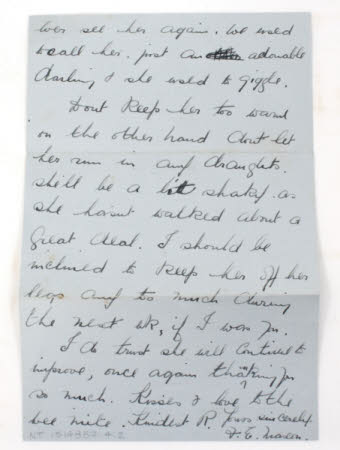 ever see her again. We used
to call her. just an adorable
darling & she used to giggle.
Dont keep her too warm
on the other hand dont let
her run in any draughts.
shell be a bit shaky as
she hasnt walked about a
great deal. I should be
inclined to keep her off her
legs any to much during
the next wk, if I was you.
I do trust she will continue to
improve, once again thanking you
so much. Kisses & love to the
wee mite. Kindest R. Yours sincerely
NT 1514882.4.2